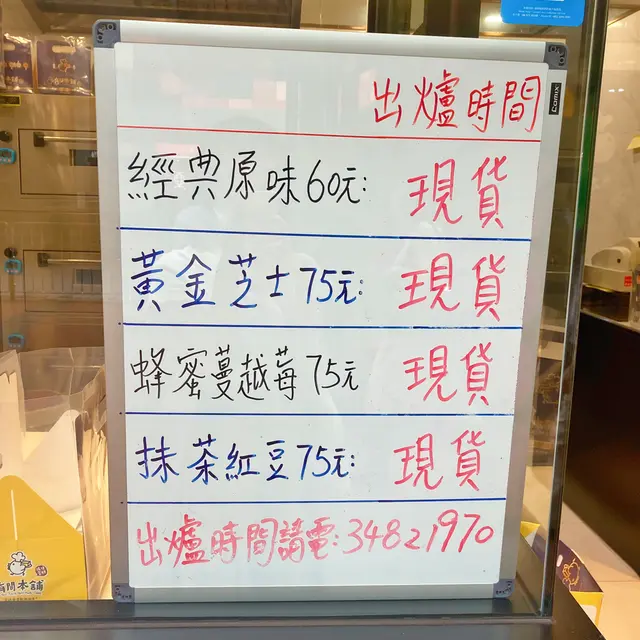 出爐時間
經典原味60元: 現貨
黃金芝士75元: 現貨
蜂蜜蔓越莓75元 現貨
抹茶紅豆75元: 現貨
出爐時間請電:34821970
Comix
本舖